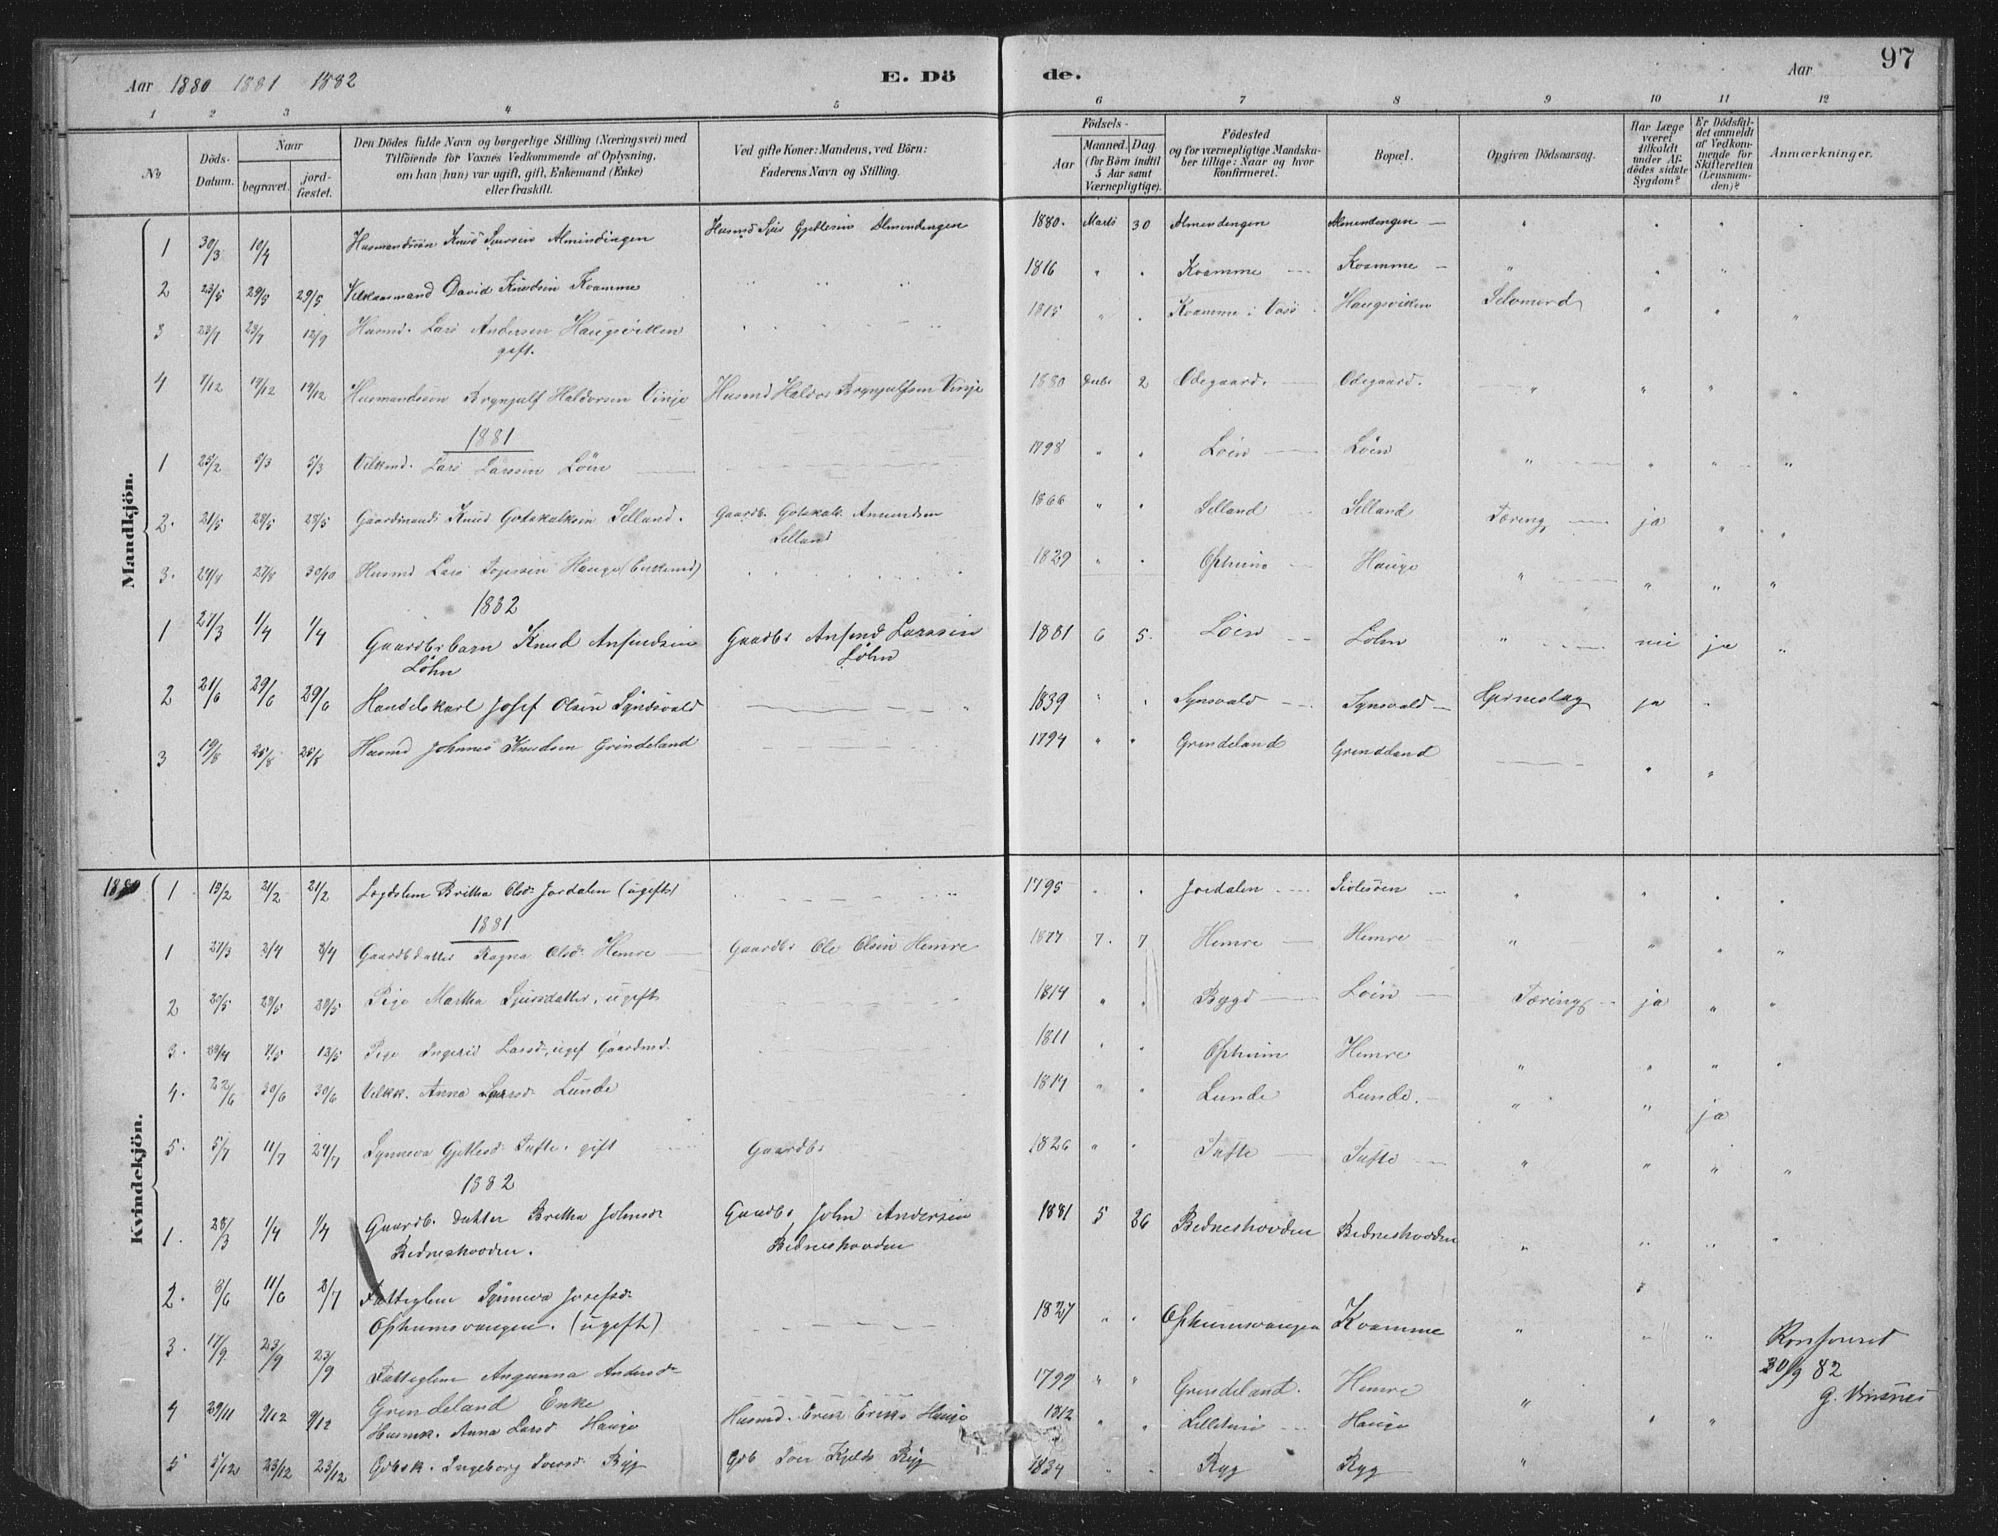 97
Aar 1880 1881 1882 E. Dö de. Aar
1 2 3 4 5 6 7 8 9 10 11 12
No
Döds-Datum.
Naar
begravet. jordfæstet.
Den Dödes fulde Navn og borgerlige Stilling (Næringsvei) med
Tilföiende for Voxnes Vedkommende af Oplysning,
om han (hun) var ugift, gift, Enkemand (Enke)
eller fraskilt.
Ved gifte Koner: Mandens, ved Börn:
Faderens Navn og Stilling.
Födsels-
Aar
Maaned. Dag
(for Börn indtil
5 Aar samt
Værnepligtige).
Födested
og for værnepligtige Mandskaber tillige: Naar og hvor
Konfirmeret.
Bopæl.
Opgiven Dödsaarsag.
Har Læge
været
tilkaldt
under Afdödes sidste
Sygdom?
Er Dödsfaldet anmeldt
af Vedkommende for
Skifteretten
(Lensmanden)?
Anmærkninger.
Mandkjön.
1 30/3 10/4 Husmandssön Knud Sjursen Almindingen Husmd Sjur Gjetlesen Almendingen 1880. Marts 30 Almendingen Almendingen
2 23/5 29/5 29/5 David Knudsen Kvamme 1816 Kvamme Kvamme
3 12/9 Husmd. Lars Andersen Haugsviken 1815 Kvamme i Voss Haugsviken Selvmord
gift.
4 7/12 19/12 19/12 Husmandssön Brynjulf Haldorsen Vinje Husmd Haldor Brynjulfsen Vinje 1880 Decbr 2 Odegaard. Odegaard.
1881
1 23/2 5/3 5/3 Vilkmd. Lars Larssen Löin 1798 Löin Löin
2. 21/5 28/5 28/5 Knud Gotskalksen Selland. Gaardb. Gotskalk Amundsen 1866 Selland Selland Tæring ja
Selland
3. 24/8 27/8 30/10 Husmd Lars Hauge (Enkemd) 1829 Opheim Hauge
1882
1 27/3 1/4 1/4 Gaardbrbarn Knud Anfindsen Gaardbr Anfind Larssen 1881 6 5. Löin Löhn nei ja
Löhn Löhn
2 21/6 29/6 29/6 Handelskarl Josef Olsen Syndsvald 1839 Synsvald Synsvald Hjerneslag ja
3 19/8 25/8 25/8 Husmd Johnnes Knudsen Grindeland 1794 Grendeland Grendeland
Kvindekjön.
1880 1 13/2 21/2 21/2 Lægdslem Britha Olsdr Jordalen (ugift) 1795 Jordalen
1881
1 27/3 3/4 3/4 Gaardbdatter Ragna Olsdr Hemre Gaardbr Ole Olsen Hemre 1877 7. 7 Hemre Hemre
2 20/5 28/5 28/5 Pige Martha Sjursdatter, ugift 1814 Bygd Löin Tæring ja
3. 29/4 7/5 13/5 Pige Ingerid Larsd. ugift Gaardmd. 1811 Opheim Hemre
4. 22/6 30/6 30/6 Vilkk. Anna Lunde 1814 Lunde Lunde. ja
5. 5/7 11/7 24/7 Synneva Gjetlesd Tufte. gift Gaardbr 1826 Tufte Tufte
1882
1. 28/3 1/4 1/4 Gaardb. datter Britha Johnsdr Gaardbr John Andersen 1881 5 26 Bedneshovden Bedneshovden
Bedneshovden. Bedneshovden
2. 3/6 11/6 2/7 Fattiglem Synneva Josefsdr
Ophumsvangen. (ugift) 1827 Ophumsvangen Kvamme
3. 17/9 23/9 23/9 Fattiglem Angunna Andersdr 1799 Grendeland. Hemre
Grendeland Enke
Konfereret
30/9 82
4 29/11 9/12 9/12 Husmk. Anna Larsd Hauge Husmd. Erik Eriks Hauge 1812 Hauge
5 5/12 23/12 23/12 Gdbsk. Ingeborg Iversd Ryg Gdb Iver Kjelds Ryg 1834 Ryg Ryg